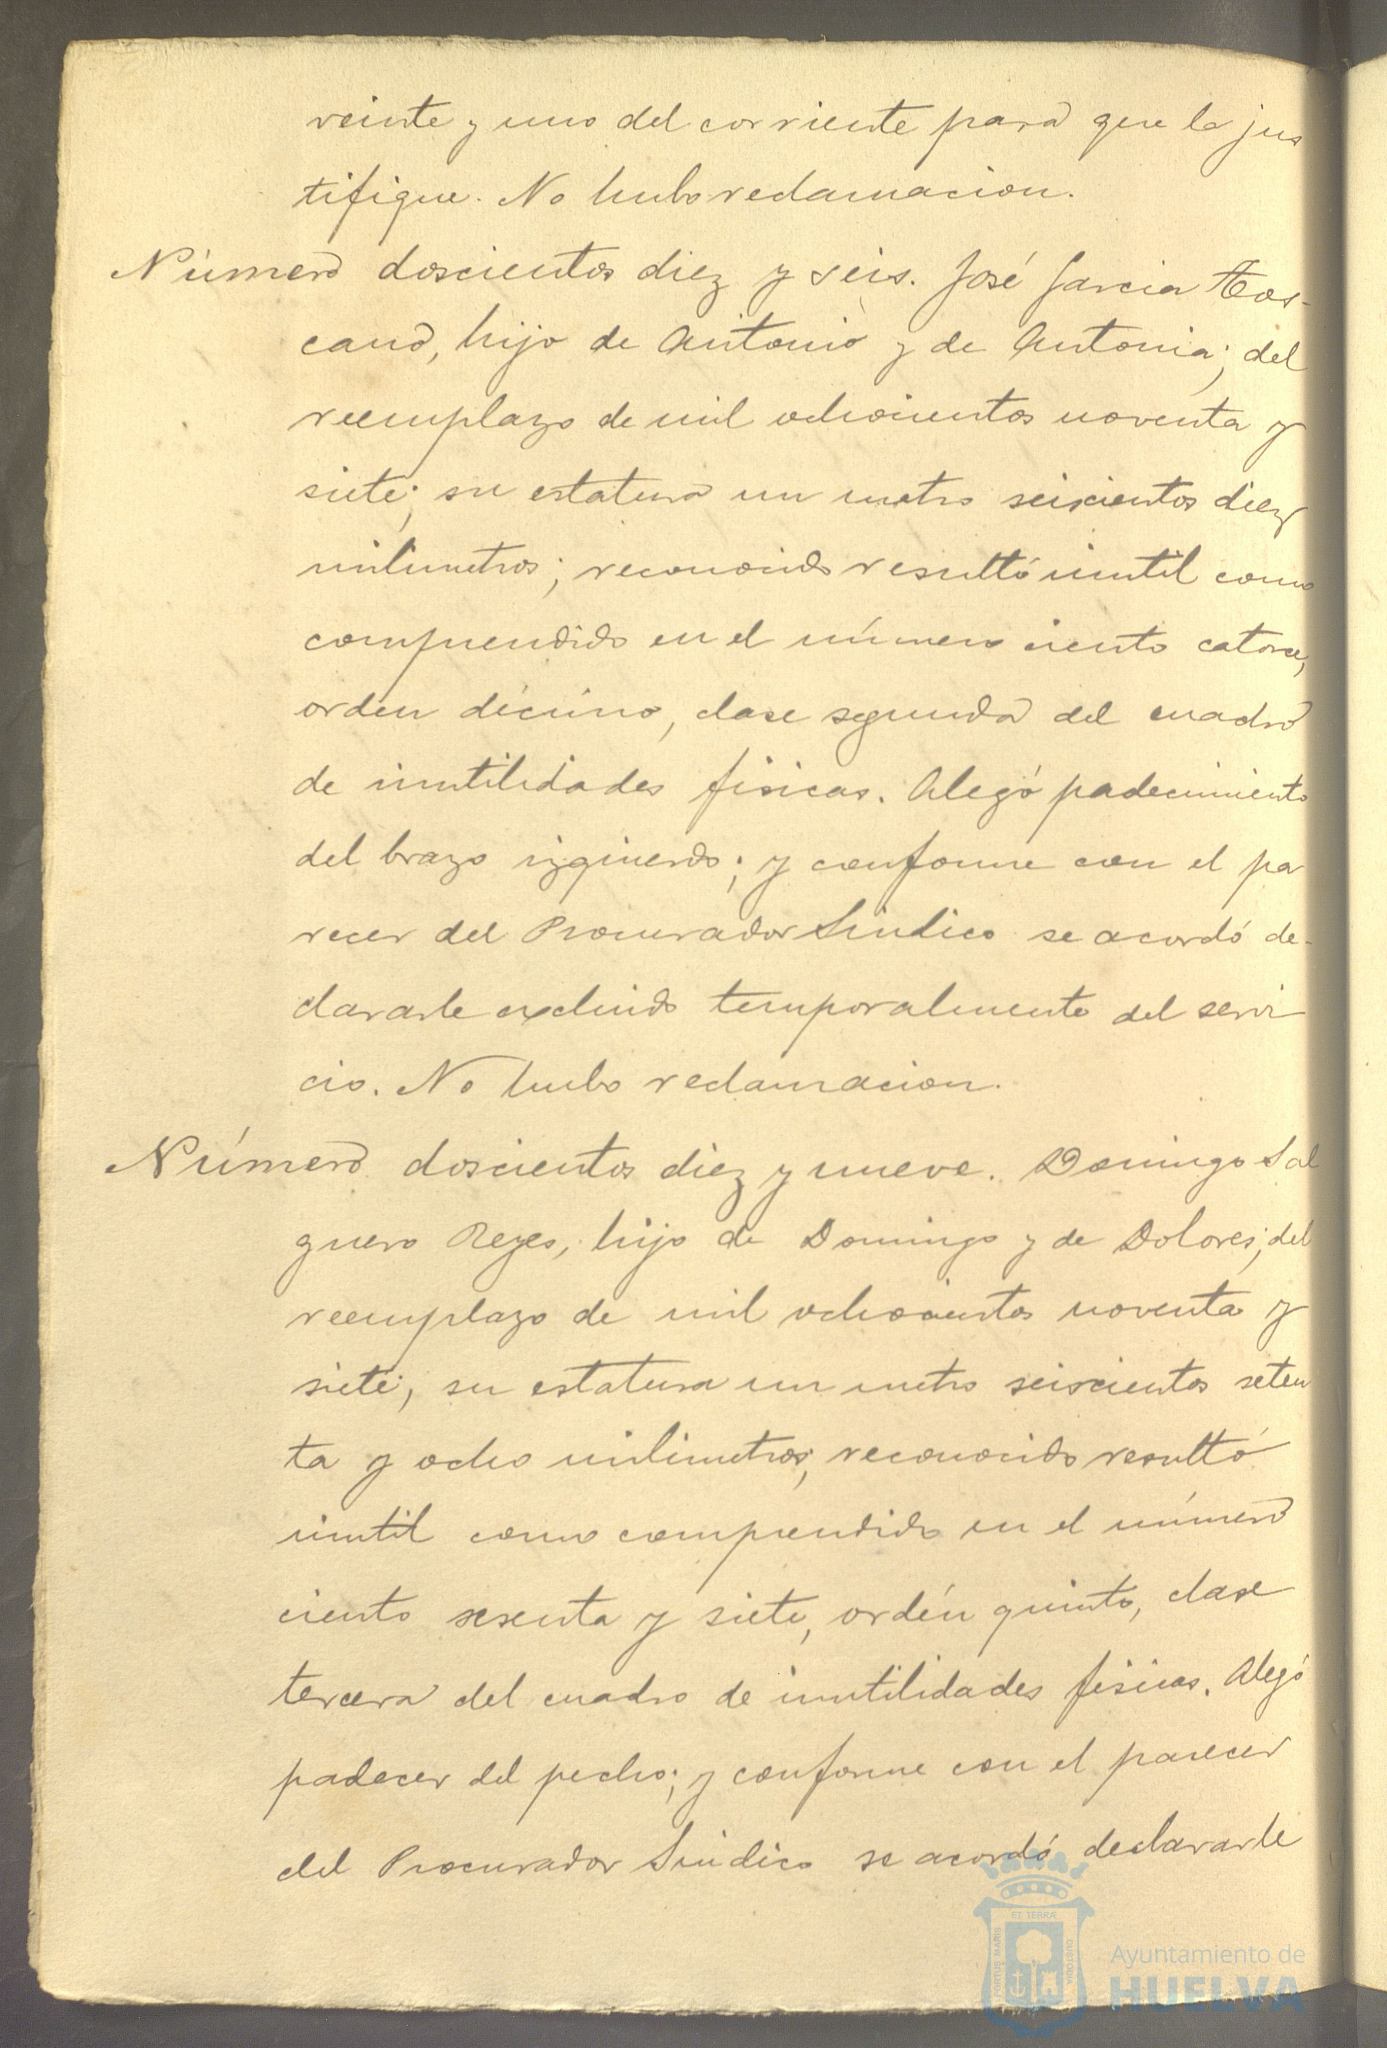 veinte y uno del corriente para que la jus
tifique. No hubo reclamacion.
Número doscientos diez y seis. José Garcia Tos-
cano, hijo de Antonio y de Antonia; del
reemplazo de mil ochocientos noventa y
siete; su estatura un metro seiscientos diez
milimetros; reconocido resultó inutil como
comprendido en el número ciento catorce,
orden décimo, clase segunda del cuadro
de inutilidades fisicas. Alegó padecimiento
del brazo izquierdo; y conforme con el pa
recer del Procurador Sindico se acordó de-
clararle excluido temporalmente del servi
cio. No hubo reclamacion.
Número doscientos diez y nueve. Domingo Sal
guero Reyes, hijo de Domingo y de Dolores; del
reemplazo de mil ochocientos noventa y
siete; su estatura un metro seiscientos seten
ta y ocho milimetros; reconocido resultó
inutil como comprendido en el número
ciento sesenta y siete, ordén quinto, clase
tercera del cuadro de inutilidades fisicas. Alegó
padecer del pecho; y conforme con el parecer
del Procurador Sindico se acordó declararle
PORTUS MARIS ET TERRÆ CUSTODIA
Ayuntamiento de
HUELVA